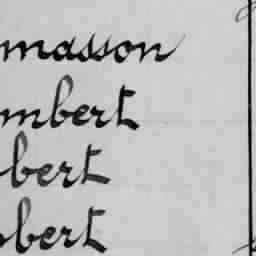 masson
mbert
bert
obert